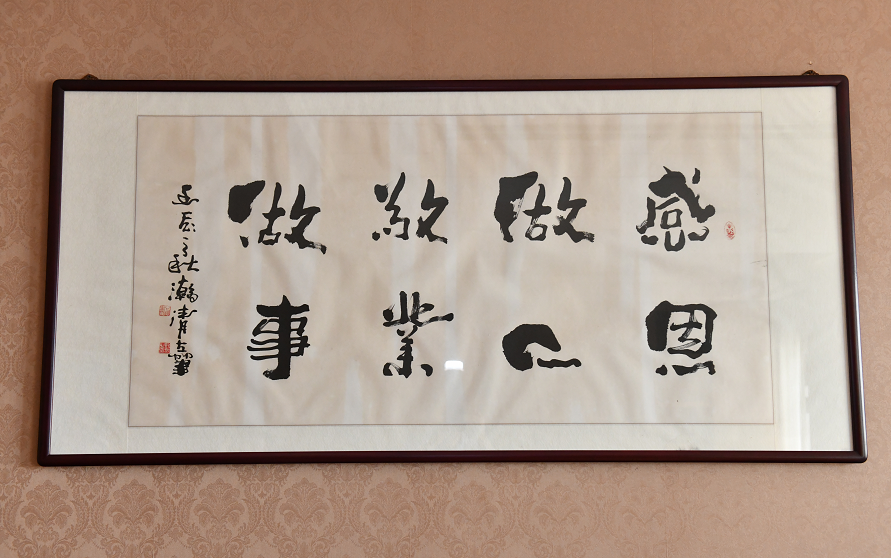 感恩
做人
敬業
做事
辰之秋瀚清左筆